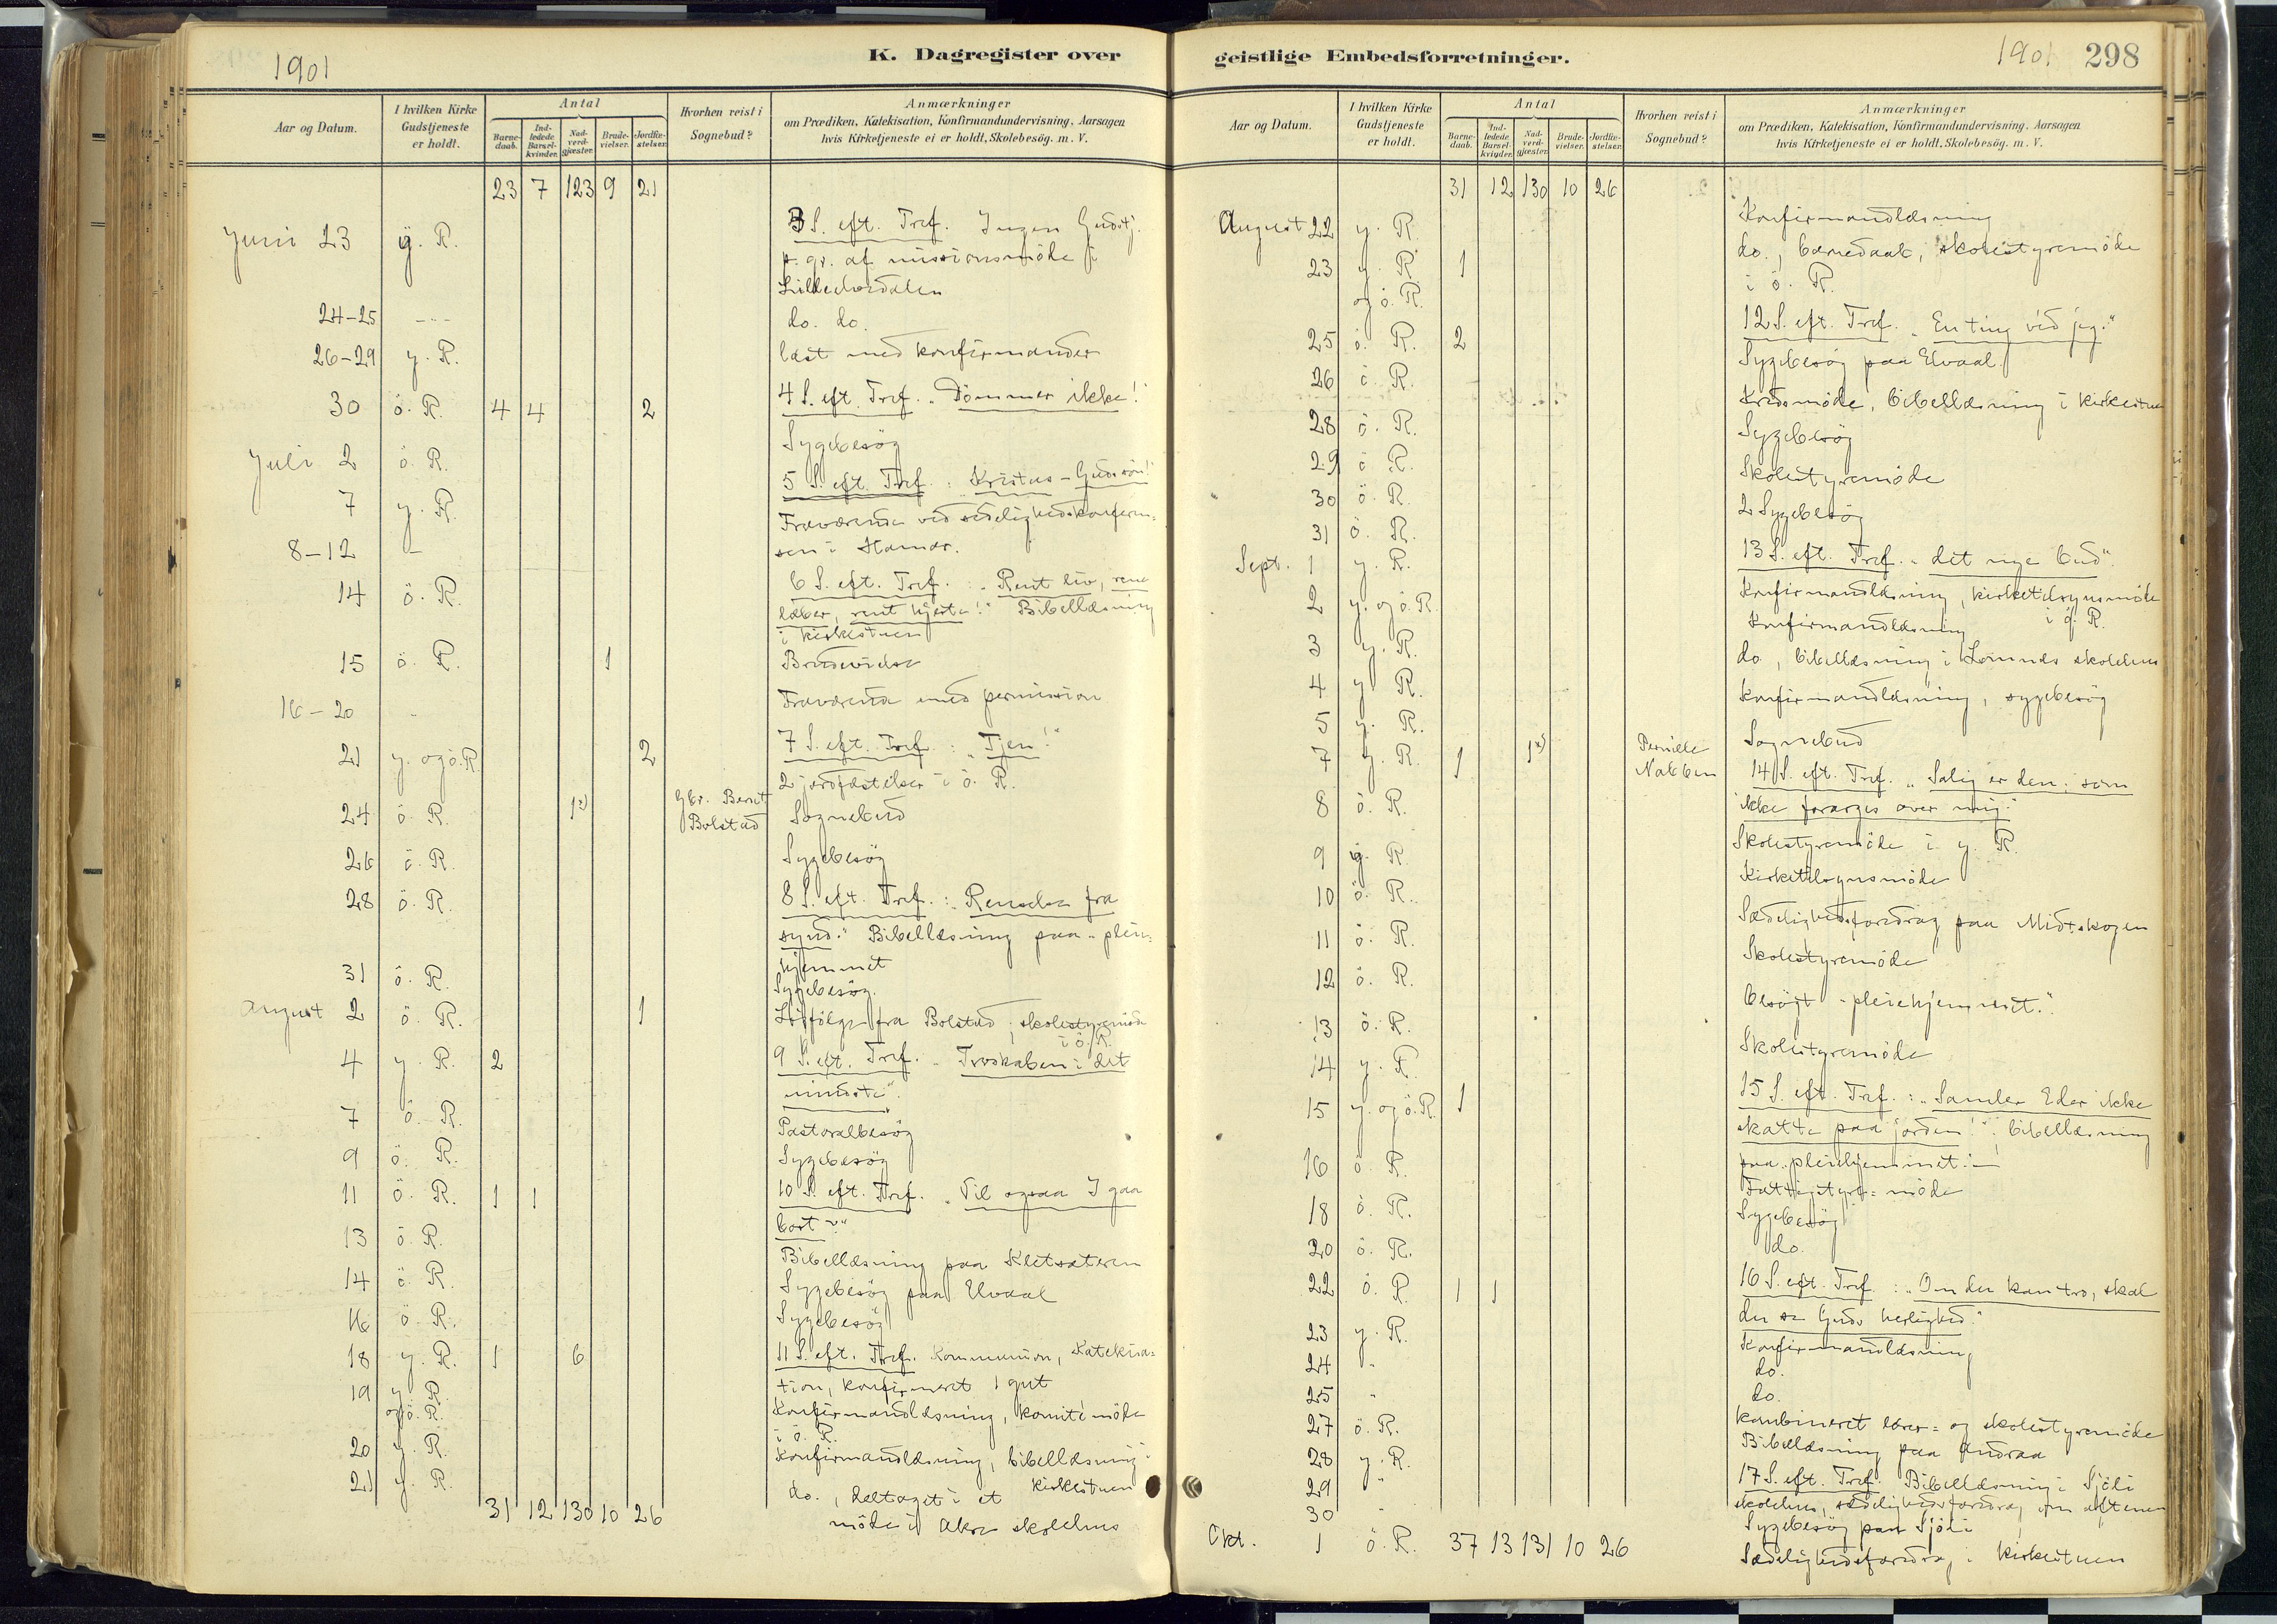 1901
K. Dagregister over
Aar og Datum.
I hvilken Kirke Gudstjeneste er holdt.
Antal
Barnedaab.
Indledede Barselkvinder.
Nadverdgjæster.
Brudevielser.
Jordfæstelser.
Hvorhen reist i Sognebud?
Anmærkninger
om Prædiken, Katekisation, Konfirmandundervisning, Aarsagen
hvis Kirketjeneste ei er holdt, Skolebesög. m. V.
23 7 123 9 21
Juni 23 y. R. 3 S. eft. Tref. Ingen Gudstj.
p. gr. af missionsmöde i
Lilleelvedalen
24-25 -"- do. do.
26-29 y. R. læst med konfirmander
30 ö. R. 4 4 2 4 S. eft. Tref. "Dömmer ikke!"
Juli 2 ö. R. Sygebesög
7 y. R. 5 S. eft. Tref.: "Kristus - Guds sön!"
8-12 - Fraværende ved sedelighedskonferen-
sen i Hamar.
14 ö. R. 6 S. eft. Tref.: "Rent liv, rene
læber, rent hjerte!" Bibellæsning
i kirkestuen
15 ö. R. 1 Brudevielse
16-20 - Fraværende med permission
21 y. og ö. R. 2 7 S. eft. Tref.: "Tjen!"
2 jordfæstelser i ö. R.
24 ö. R. 1 x) Gbr. Bernt Bolstad Sognebud
26 ö. R. Sygebesög
28 ö. R. 8 S. eft. Tref.: "Renselse fra
synd." Bibellæsning paa "pleie-
hjemmet
31 ö. R. Sygebesög.
August 2 ö. R. 1 Ligfölge fra Bolstad, skolestyremöde
i ö. R.
4 y. R. 2 9 S. eft. Tref. "Troskaben i det
mindste".
7 ö. R. Pastoralbesög
9 ö. R. Sygebesög
11 ö. R. 1 1 10 S. eft. Tref. "Vil ogsaa I gaa
bort?"
13 ö. R. Bibellæsning paa Kletsæteren
14 ö. R. Sygebesög paa Elvaal
16 ö. R. Sygebesög
18 y. R. 1 6 11 S. eft. Tref. Kommunion, Katekisa-
tion, konfirmeret 1 gut
19 y. R. og ö. R. Konfirmandlæsning, komitémöde
i ö. R.
20 y. R. Konfirmandlæsning, bibellæsning i
kirkestuen
21 y. R. do., deltaget i et
möde i Akre skolehus
31 12 130 10 26
geistlige Embedsforretninger.
1901 298
Aar og Datum.
I hvilken Kirke Gudstjeneste er holdt.
Antal
Barnedaab.
Indledede Barselkvinder.
Nadverdgjæster.
Brudevielser.
Jordfæstelser.
Hvorhen reist i Sognebud?
Anmærkninger
om Prædiken, Katekisation, Konfirmandundervisning, Aarsagen
hvis Kirketjeneste ei er holdt, Skolebesög. m. V.
31 12 130 10 26
August 22 y. R. Konfirmandlæsning
23 y. R. og ö. R. 1 do., barnedaab, skolestyremöde
i ö. R.
25 ö. R. 2 12 S. eft. Tref. "En ting ved jeg."
26 ö. R. Sygebesög paa Elvaal.
28 ö. R. Kredsmöde, bibellæsning i kirkestuen
29 ö. R. Sygebesög
30 ö. R. Skolestyremöde
31 ö. R. 2 Sygebesög
Sept. 1 y. R. 13 S. eft. Tref. "det nye bud".
2 y. og ö. R. Konfirmandlæsning, kirketilsynsmöde
i ö. R.
3 y. R. Konfirmandlæsning
4 y. R. do., bibellæsning i Lomnæs skolehus
5 y. R. Konfirmandlæsning, sygebesög
7 y. R. 1 1 x) Pernille Nabben Sognebud
8 ö. R. 14 S. eft. Tref. "Salig er den, som
ikke forarges over mig."
9 y. R. Skolestyremöde i y. R.
10 ö. R. Kirketilsynsmöde
11 ö. R. Sædelighedsforedrag paa Midtskogen
12 ö. R. Skolestyremöde
13 ö. R. besögt "pleiehjemmet."
14 y. R. Skolestyremöde
15 y. og ö. R. 1 15 S. eft. Tref.: "Samler Eder ikke
skatte paa jorden!", bibellæsning
paa "pleiehjemmet."
16 ö. R. Fattigstyre-möde
18 ö. R. Sygebesög
20 ö. R. do.
22 ö. R. 1 1 16 S. eft. Tref.: "Om du kan tro, skal
du se Guds herlighed."
23 y. R. Konfirmandlæsning
24 " do.
25 " do.
27 ö. R. kombineret lærer- og skolestyremöde
28 y. R. Bibellæsning paa Andraa
29 " 17 S. eft. Tref. Bibellæsning i Sjöli
skolehus, sædelighedsforedrag om aftenen
30 " Sygebesög paa Sjöli
Okt. 1 ö. R. Sædelighedsforedrag i kirkestuen
37 13 131 10 26